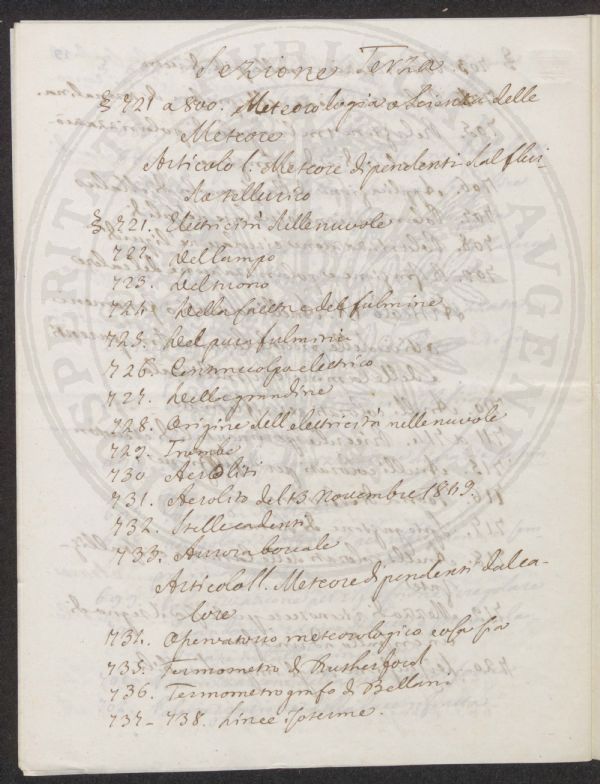 Sezione Terza
§ 721 a 800. Meteorologia o Scienza delle
Meteore
Articolo I. Meteore dipendenti dal flui-
do tellurico
§ 721. Elettricità delle nuvole
722. Del lampo
723. Del tuono
724. Della saetta e del fulmine
725. Del parafulmine
726. Contraccolpo elettrico
727. Della grandine
728. Origine dell'elettricità nelle nuvole
729. Trombe
730 Aeroliti
731. Aerolito del 13 Novembre
732. Stelle cadenti
733. Aurora boreale
Articolo II. Meteore dipendenti dal ca-
lore
734. Osservatorio meteorologico cosa sia
735. Termometro di Rutherford
736. Termometrografo di Bellani
737-738. Linee isoterme.